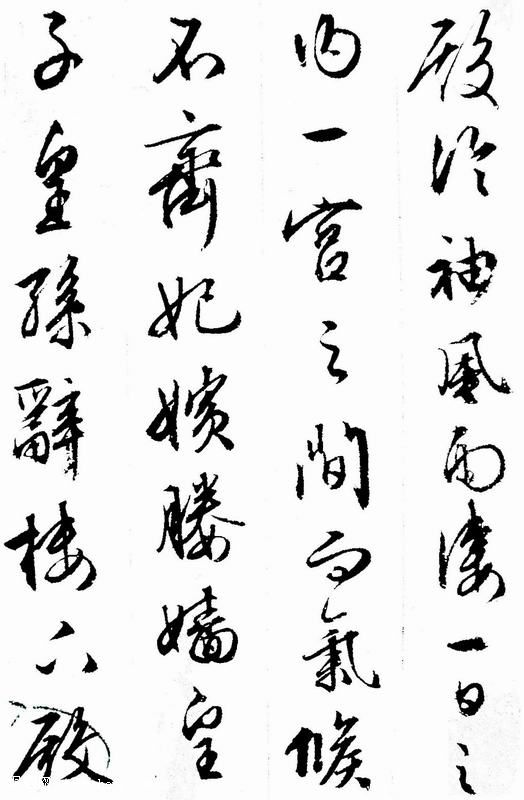 殿冷袖風雨凄一日之
内一宮之間而氣候
不齊妃嬪媵嬙皇
子皇孫辭樓下殿